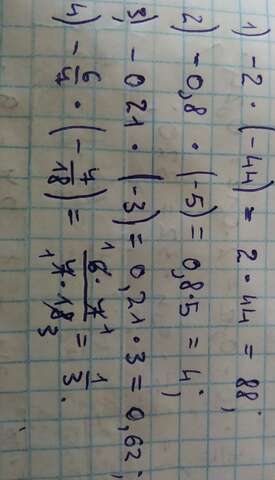 1) -2 · (-44) = 2 · 44 = 88;
2) -0,8 · (-5) = 0,8 · 5 = 4;
3) -0 21 · (-3) = 0,21 · 3 = 0,62;
4) -6/7 · (-7/18) = 6 · 7 / 7 · 18 = 1/3.